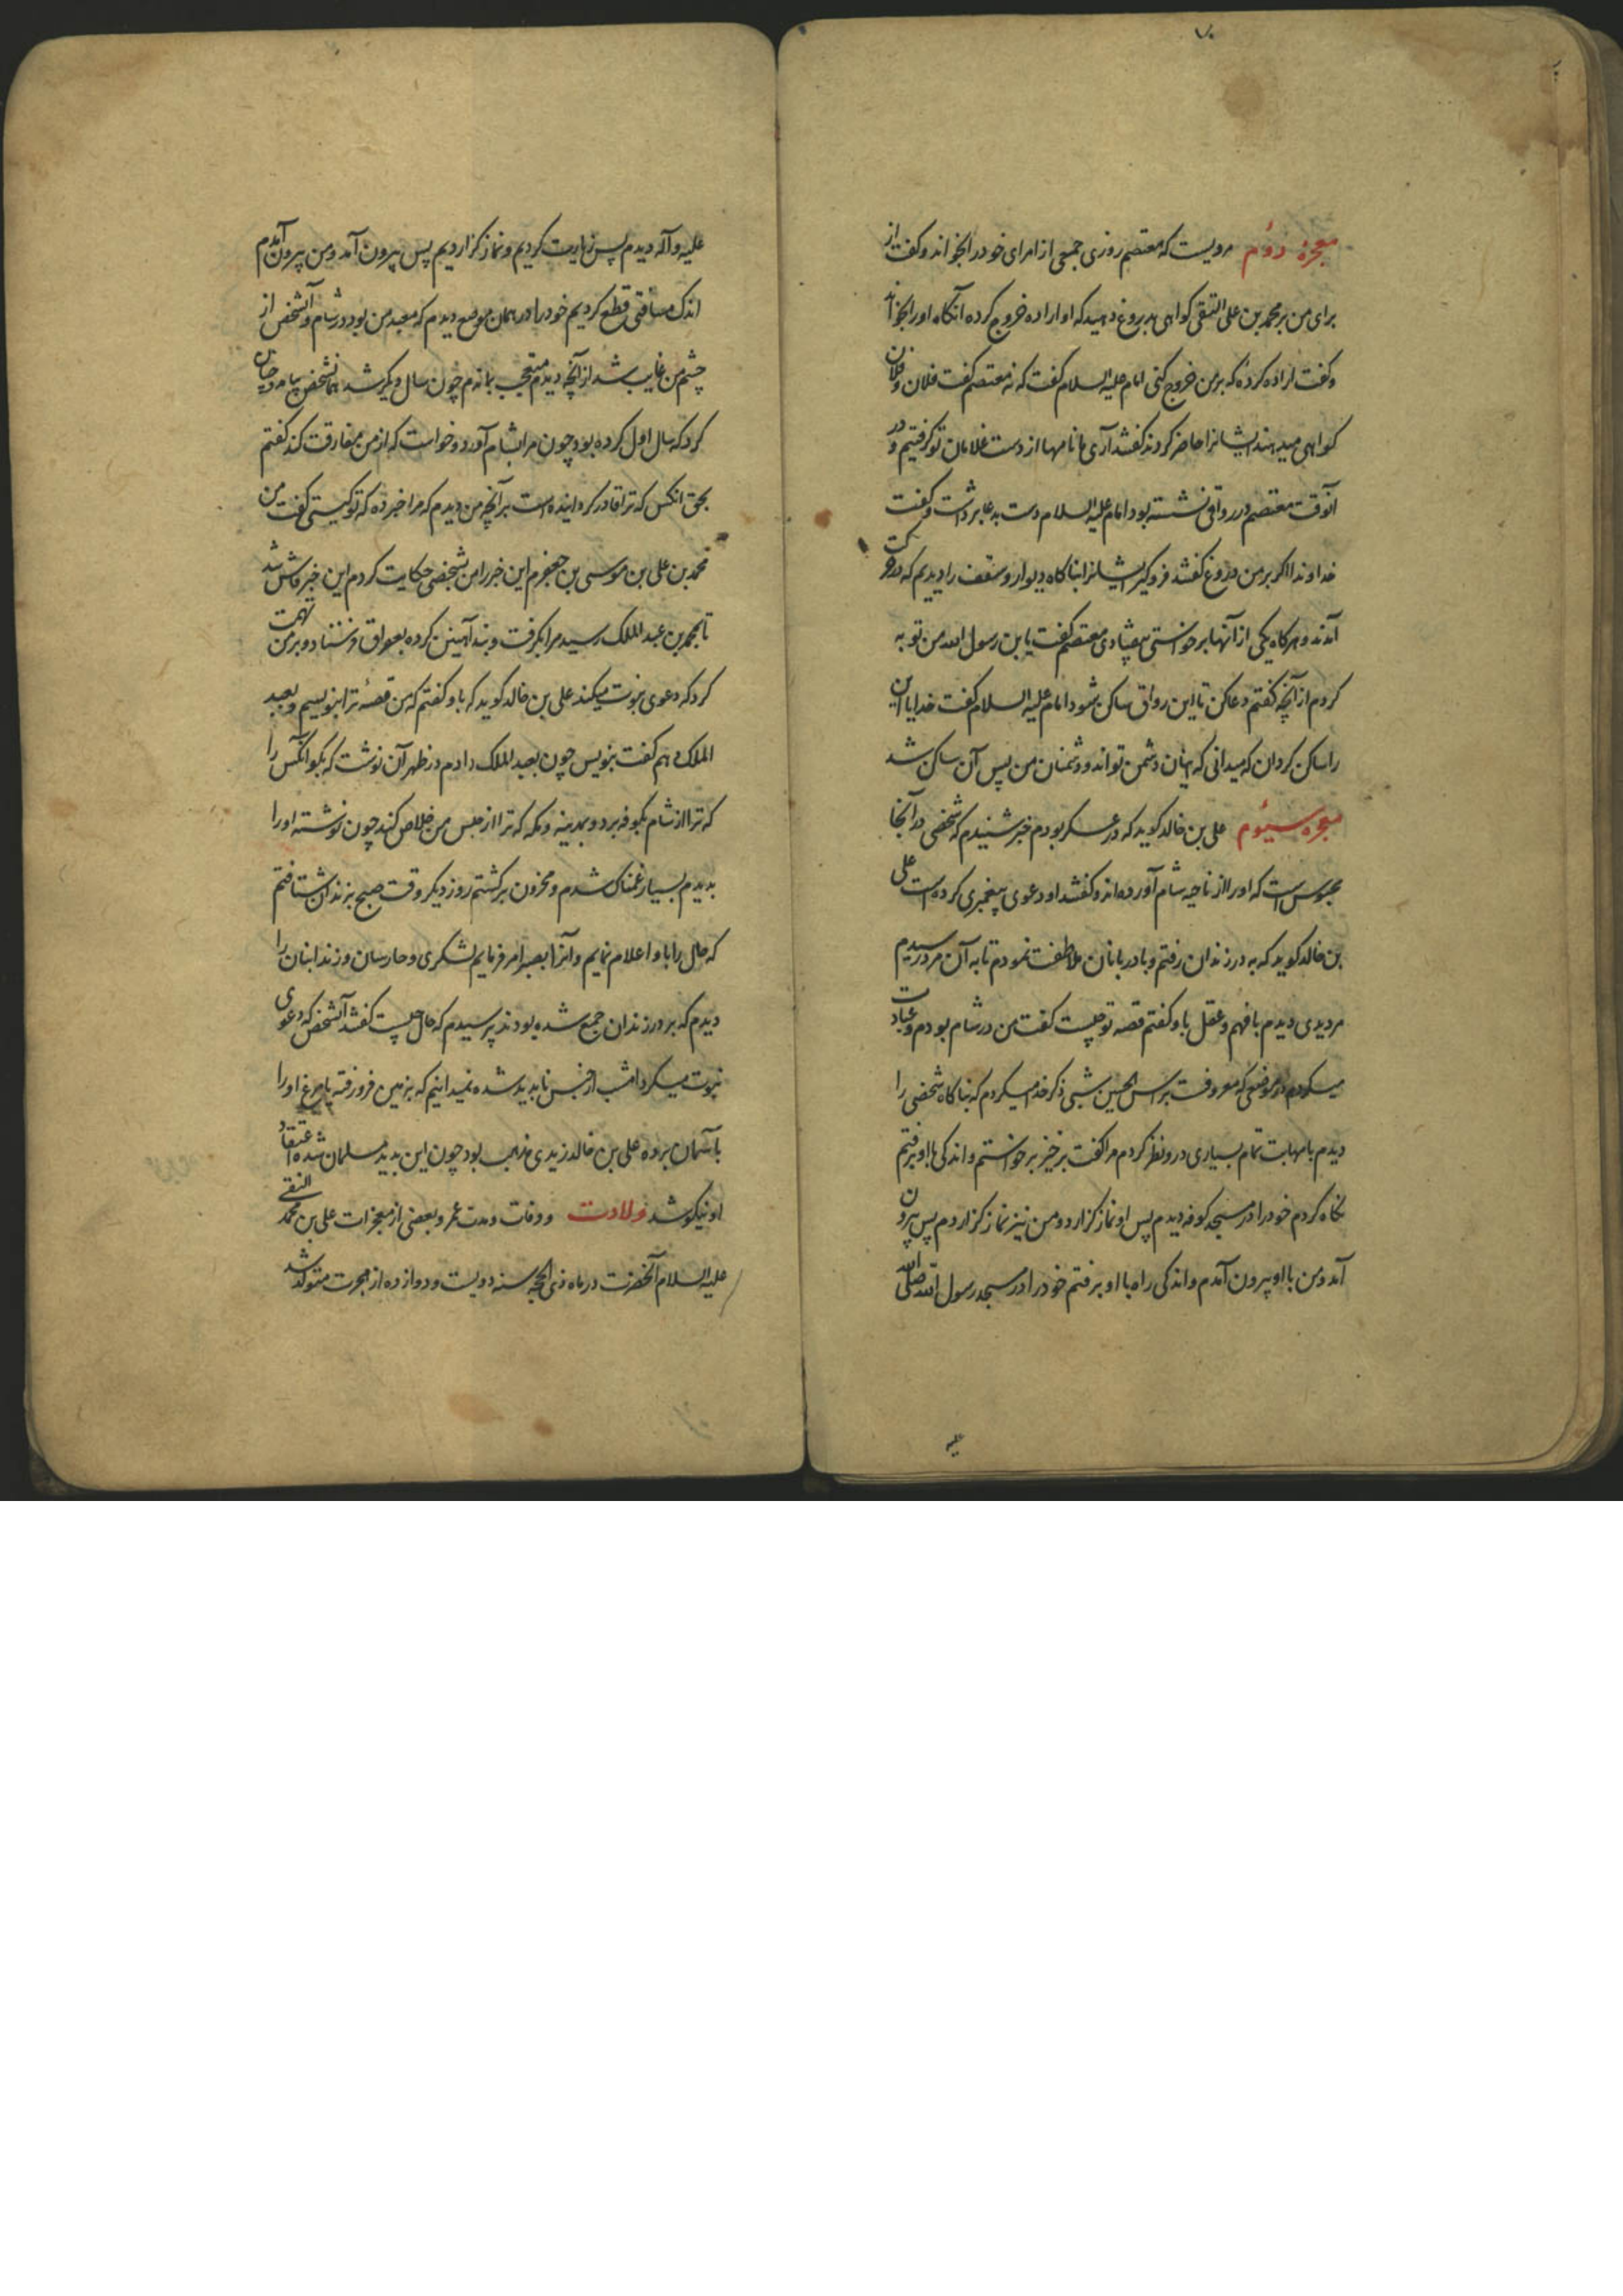 معجزه دوّم مرویست که معتصم روزی جمعی از امرای خود را بخواند و گفت از
برای من بر محمد بن علی التقی کواهی بدروغ دهید که او اراده خروج کرده آنکاه او را بخواند
و گفت اراده کردهٔ که بر من خروج کنی امام علیه السلام گفت که نه معتصم گفت فلان و فلان
کواهی میدهند ایشانرا حاضر کردند گفتند آری ما نامها از دست غلامان تو گرفتیم و در
آنوقت معتصم در رواقی نشسته بود امام علیه السلام دست بدعا برداشت و گفت
خداوندا اگر بر من دروغ گفتند فرو گیر ایشانرا بناکاه دیوار و سقف را دیدیم که در حرکت
آمدند و هرکاه یکی از آنها برخواستی بیفتادی معتصم گفت یا بن رسول الله من توبه
کردم از آنچه گفتم دعا کن تا این رواق ساکن شود امام علیه السلام گفت خدایا این
را ساکن کردان که میدانی که ایشان دشمن تواند و دشمنان من پس آن ساکن شد
معجزه سیّوم علی بن خالد کوید که در عسکر بودم خبر شنیدم که شخصی در آنجا
محبوس است که او را از ناحیه شام آورده‌اند و گفتند او دعوی پیغمبری کرده است علی
بن خالد کوید که به در زندان رفتم و با دربانان ملاطفت نمودم تا به آن مرد رسیدم
مردیدی دیدم با فهم و عقل باو گفتم قصه تو چیست گفت من در شام بودم و عبادت
میکردم در موضعی که معروفست براس الحسین شبی ذکر خدا میکردم که بناکاه شخصی را
دیدم با مهابت تمام بسیاری در و نظر کردم مرا گفت برخیز برخواستم و اندکی با او برفتم
نکاه کردم خود را در مسجد کوفه دیدم پس او نماز گزارد و من نیز نماز گزاردم پس بیرون
آمد و من با او بیرون آمدم و اندکی راه با او برفتم خود را در مسجد رسول الله صلی الله
علیه
علیه و آله دیدم پس زیارت کردیم و نماز گزاردیم پس بیرون آمد و من بیرون آمدم
اندک مسافتی قطع کردیم خود را در همان موضع دیدم که معبد من بود در شام و آنشخص از
چشم من غایب شد از آنچه دیدم متعجب بماندم چون سال دیگر شد همانشخص بیامد و چنان
کرد که سال اول کرده بود چون مرا بشام آورد و خواست که از من مفارقت کند گفتم
بحق انکس که ترا قادر کردانیده است بر آنچه من دیدم که مرا خبر ده که تو کیستی گفت من
محمد بن علی بن موسی بن جعفرم این خبر را من بشخصی حکایت کردم این خبر فاش شد
تا بمحمد بن عبد الملک رسید مرا بگرفت و بند آهنین کرده بعراق فرستاد و بر من تهمت
کرد که دعوی نبوت میکند علی بن خالد کوید که باو گفتم که من قصهٔ ترا بنویسیم و بعبد
الملک دهم گفت بنویس چون بعبد الملک دادم در ظهر آن نوشت که بگو انکس را
که ترا از شام بکوفه برد و بمدینه و مکه که ترا از حبس من خلاص کند چون نوشته او را
بدیدم بسیار غمناک شدم و محزون برگشتم روز دیگر وقت صبح بزندان شتافتم
که حال را باو اعلام نمایم و آنرا بصبر امر فرمایم لشکری و حارسان و زندانبان را
دیدم که بر در زندان جمع شده بودند پرسیدم که حال چیست گفتند آنشخص که دعوی
نبوت میکرد امشب از حبس ناپدید شده نمیدانیم که بزمین فرو رفته یا مرغ او را
بآسمان برده علی بن خالد زیدی مذهب بود چون این بدید مسلمان شد و اعتقاد
او نیکو شد ولادت و وفات و مدت عمر و بعضی از معجزات علی بن محمد النقی
علیه السلام آنحضرت در ماه ذی الحجه سنه دویست و دوازده از هجرت متولد شد